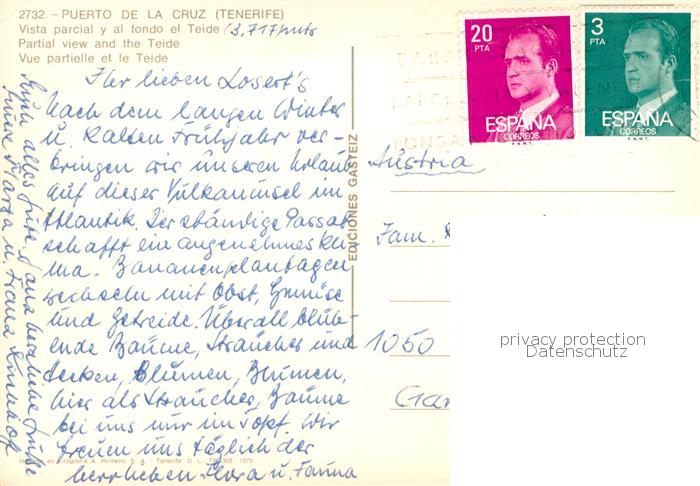 2732. - PUERTO DE LA CRUZ (TENERIFE)
Vista parcial y al fondo el Teide (3.717 mts
Partial view and the Teide
Vue partielle et le Teide
Ihr lieben Losert's
Nach dem langen Winter
u. kalten Frühjahr ver-
bringen wir unseren Urlaub
auf dieser Vulkaninsel im
Atlantik. Der ständige Passat
schafft ein angenehmes Kli-
ma. Bananenplantagen
wechseln mit Obst, Gemüse
und Getreide. Überall blüh-
ende Bäume, Sträucher und
Hecken, Blumen, Blumen,
hier als Sträucher, Bäume
bei uns nur im Topf. Wir
freuen uns täglich der
herrlichen Flora u. Fauna
Euch alles Gute u. ganz herzliche Grüße
Eure Marta u. Franz
EDICIONES GASTEIZ
20
PTA
ESPAÑA
CORREOS
F.N.M.T.
3
PTA
ESPAÑA
CORREOS
F.N.M.T.
Austria
Fam.
1050
privacy protection
Datenschutz